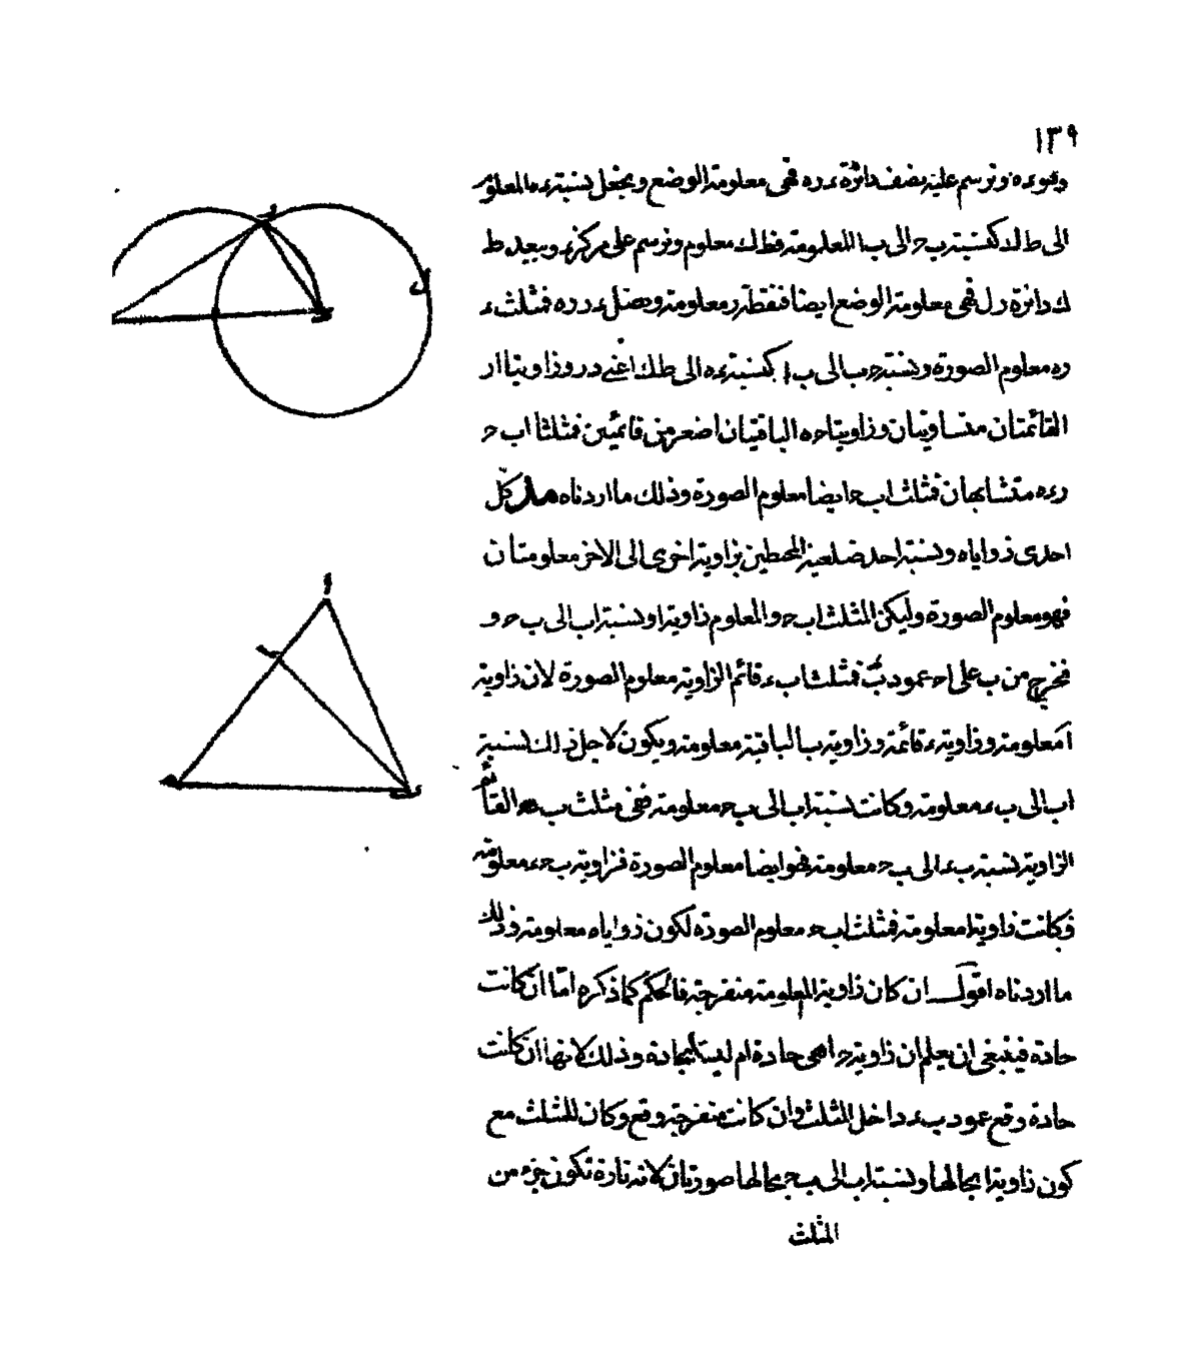 ١٣٩
وهو ءه ونرسم عليه نصف دائرة ءره فهى معلومة الوضع ونجعل نسبة ءه المعلوم
الى ط ك كنسبة ب ح الى ب ا المعلومة فط ك معلوم ونرسم على مركز ء وببعد ط
ك دائرة رل فهى معلومة الوضع ايضا فنقطة ر معلومة ونصل ءر ره فمثلث ء
ره معلوم الصورة ونسبة حب الى ب ا كنسبة ءه الى ط ك اعنى ءر وزاويتا ا ر
القائمتان متساويتان وزاويتا حه الباقيتان اصغر من قائمتين فمثلثا اب ح
رءه متشابهان فمثلث اب ح ايضا معلوم الصورة وذلك ما اردناه كل
احدى زواياه ونسبة احد ضلعيه المحيطين بزاوية اخرى الى الاخر معلومتان
فهو معلوم الصورة وليكن المثلث اب ح والمعلوم زاوية ا ونسبة اب الى ب ح و
فنخرج من ب على اح عمود بء فمثلث اب ء قائم الزاوية معلوم الصورة لان زاوية
ا معلومة وزاوية ء قائمة وزاوية ب الباقية معلومة ويكون لاجل ذلك نسبة
اب الى ب ء معلومة وكانت نسبة اب الى ب ح معلومة ففى مثلث ب ءح القائم
الزاوية نسبة ب ء الى ب ح معلومة فهو ايضا معلوم الصورة فزاوية ب ح ء معلومة
وكانت زاوية ا معلومة فمثلث اب ح معلوم الصورة لكون زواياه معلومة وذلك
ما اردناه اقول ان كان زاوية المعلومة منفرجة فالحكم كما ذكره اما ان كانت
حادة فينبغى ان يعلم ان زاوية ح اهى حادة ام ليست بحادة وذلك لانها ان كانت
حادة وقع عمود ب ء داخل المثلث وان كانت منفرجة وقع وكان للمثلث مع
كون زاوية ا بحالها ونسبة اب الى ب ح بحالها صورتان لانه تارة تكون جزء من
المثلث